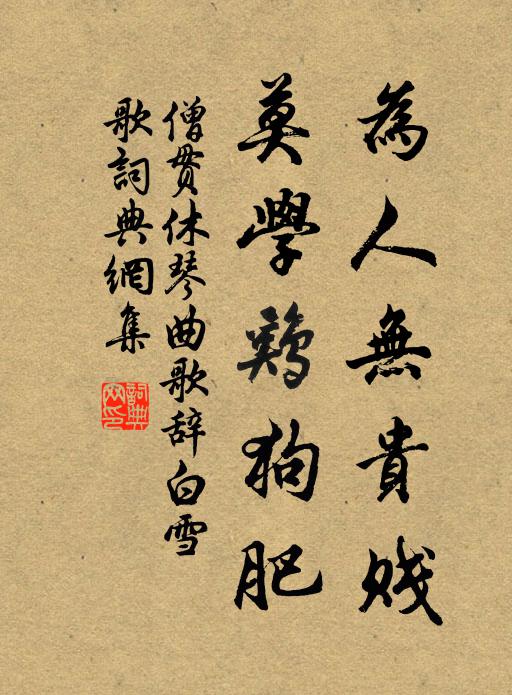 為人無貴賤
莫學鷄狗肥
僧貫休琴曲歌辞白雪
歌詞典網集
詞典網印